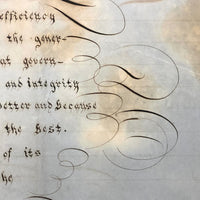 efficiency
the gener-
at govern-
and integrity
better and because
the best.
of its
he